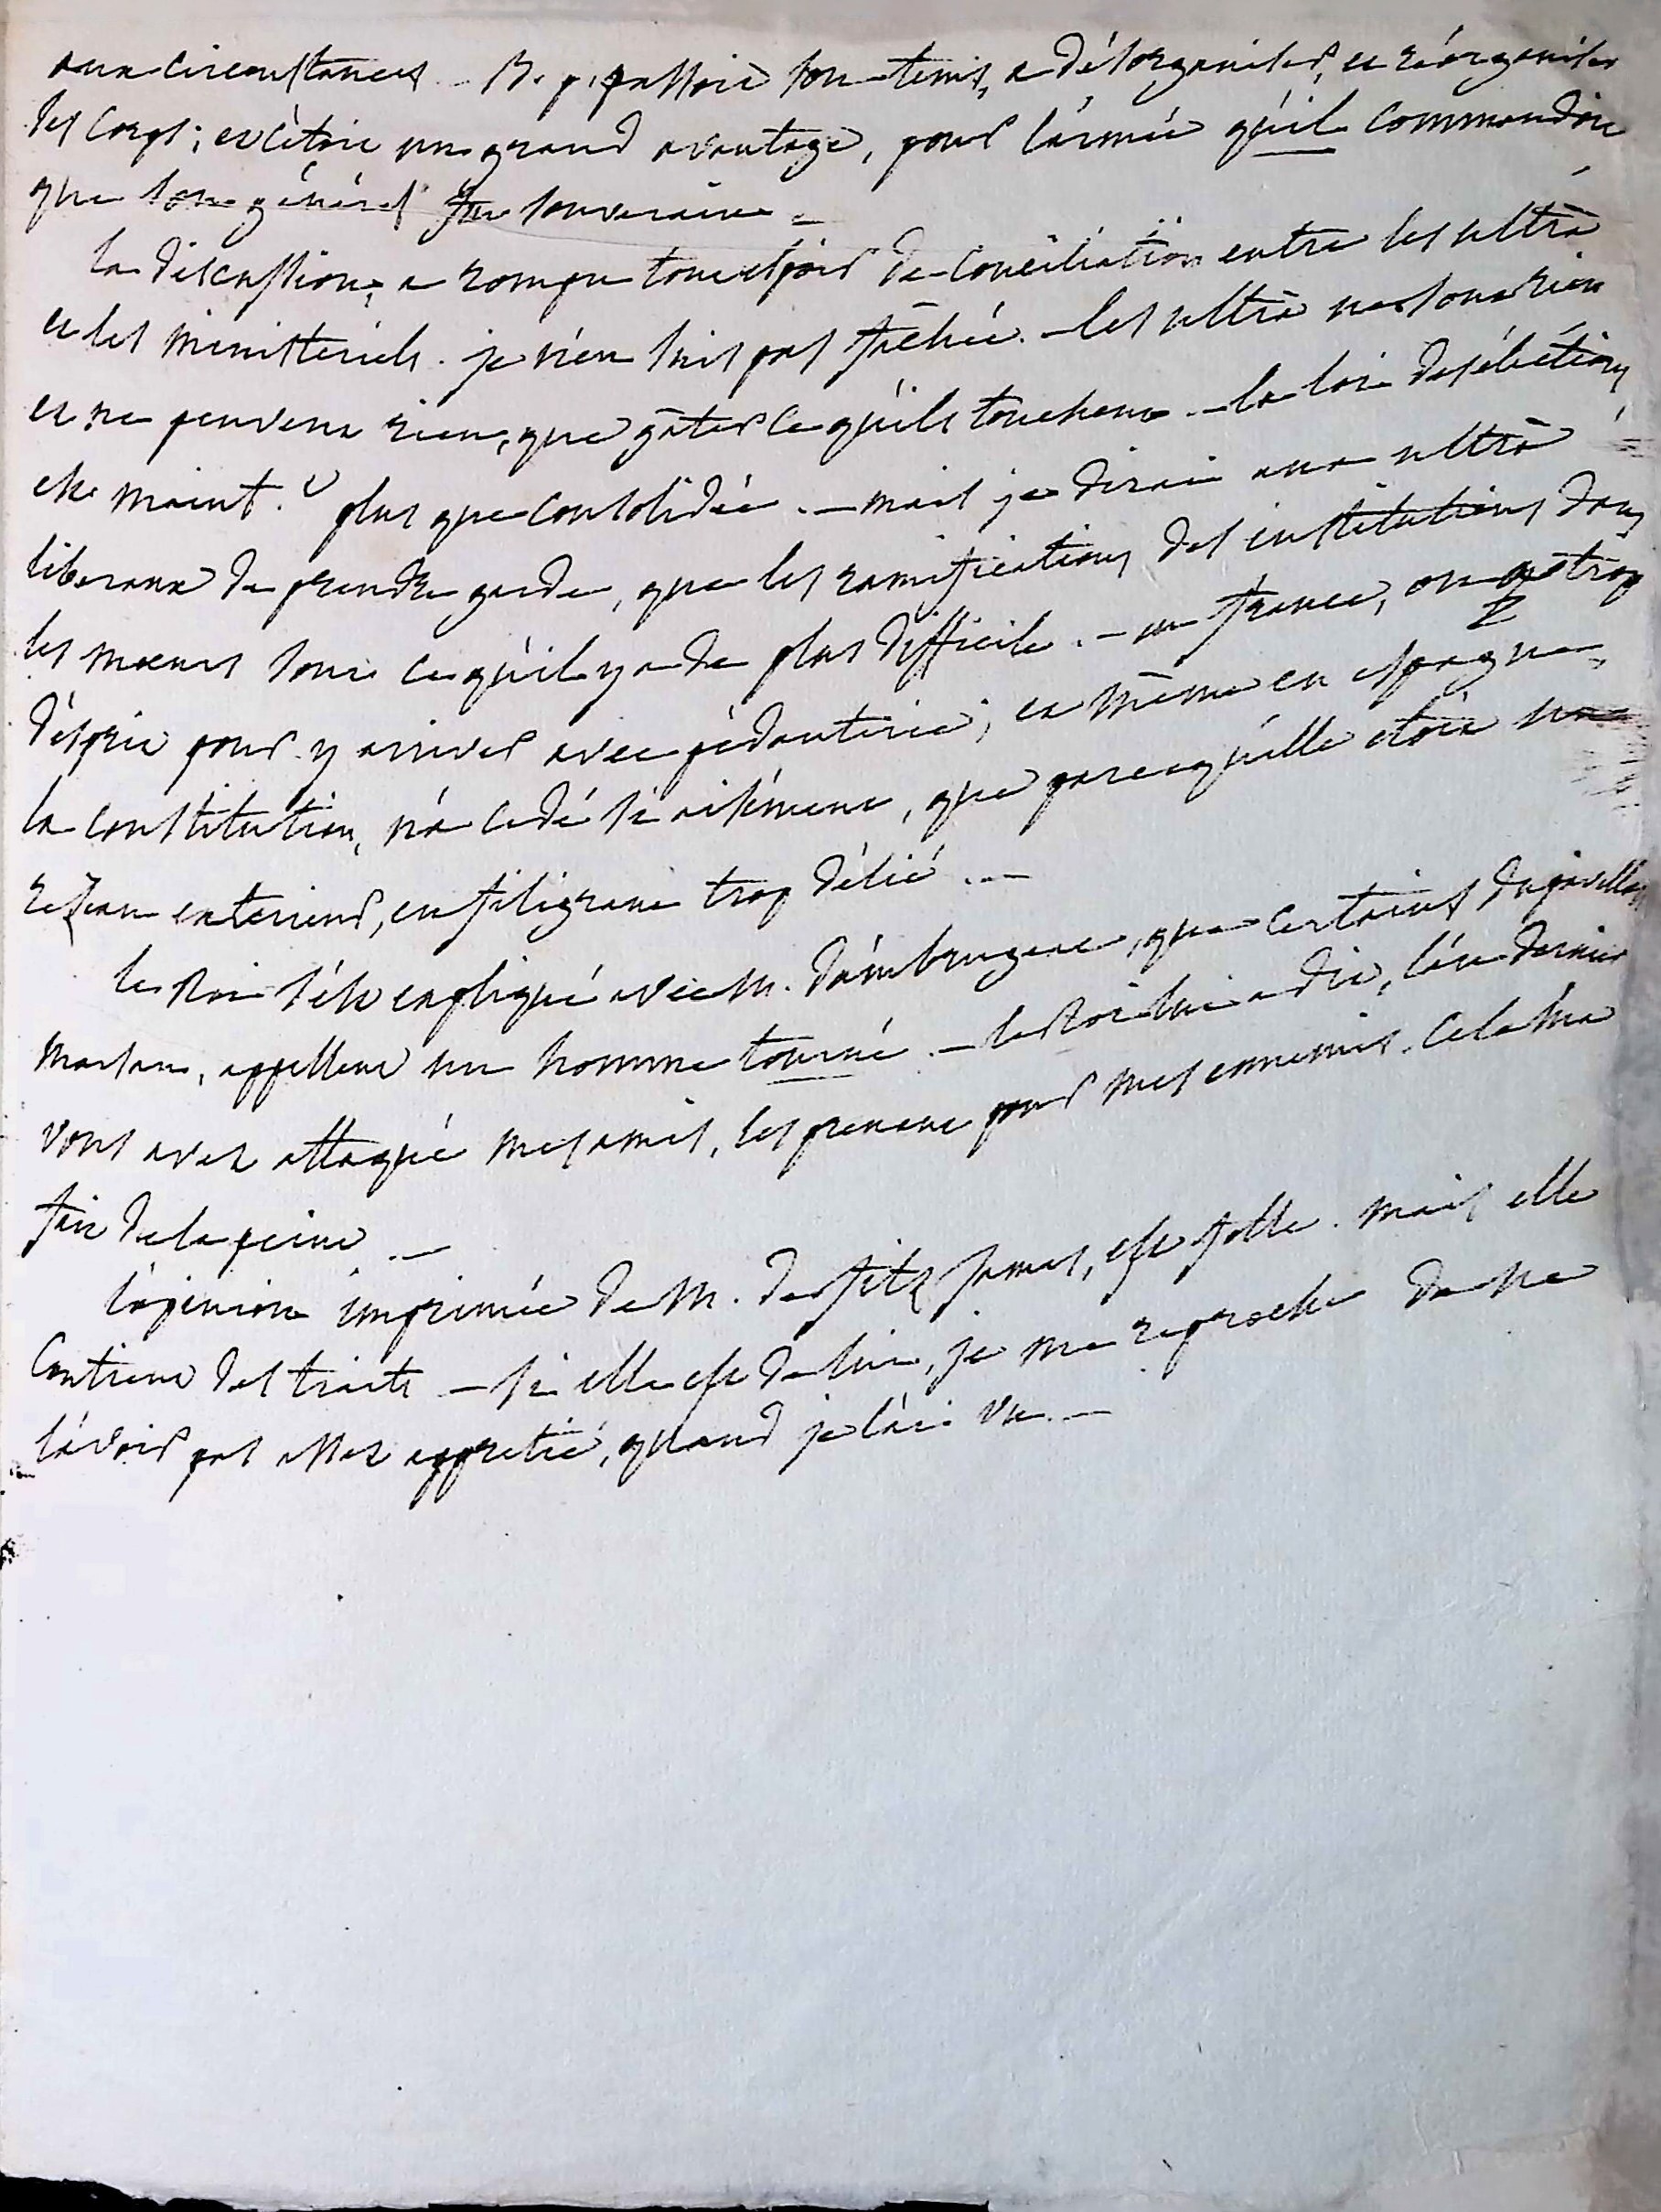 aux circonstances. – B. p. passoit son tems, a désorganiser, et réorganiser
des corps ; et c'étoit un grand avantage, pour l'armée qu'il commandoit
que son général fut souverain. –
la discussion, a rompu tout espoir de conciliation entre les ultrà
et les ministeriels. je n'en suis pas fâchée. – les ultrà ne sont rien
et ne peuvent rien, que gâter ce qu'ils touchent. – la loi des élections
est maint.t plus que consolidée. – mais je dirai aux ultrà
liberaux de prendre garde, que les ramifications des institutions dans
les mœurs sont ce qu'il y a de plus difficile. – en france, on a trop
d'esprit pour y arriver avec pédanterie ; et même en espagne,
la constitution, n'a cedé si aisément, que parcequ'elle etoit un
rezeau exterieur, en filigrane trop délié. –
le Roi s'est expliqué avec M. d'ambrugeac, que certains du pavillon
marsan, appellent un homme tourné. – le Roi lui a dit, l'an dernier
vous avez attaqué mes amis, les prenant pour mes ennemis. Cela m'a
fait de la peine. –
l'opinion imprimée de M. de fitz james, est folle. mais elle
contient des traits – si elle est de lui, je me reproche de ne
l'avoir pas assez appretié, quand je l'ai vu. –